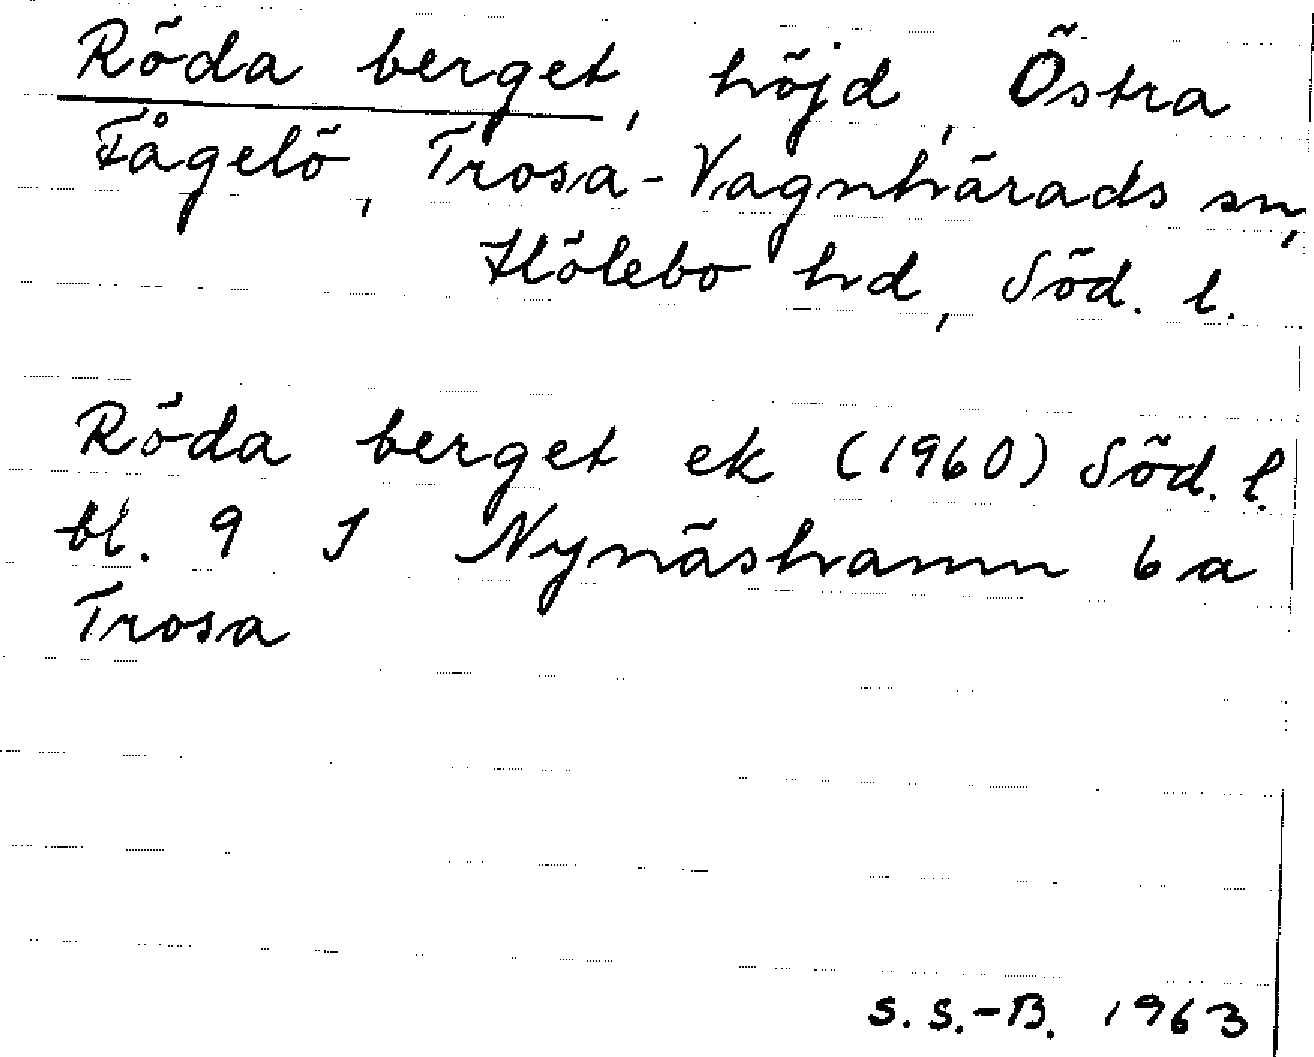 Röda berget, höjd, Östra
Fågelö, Trosa-Vagnhärads sn,
Hölebo hd, Söd. l.
Röda berget ek (1960) Söd. l.
bl. 9 I Nynäshamn 6 a
Trosa
S. S.-B. 1963